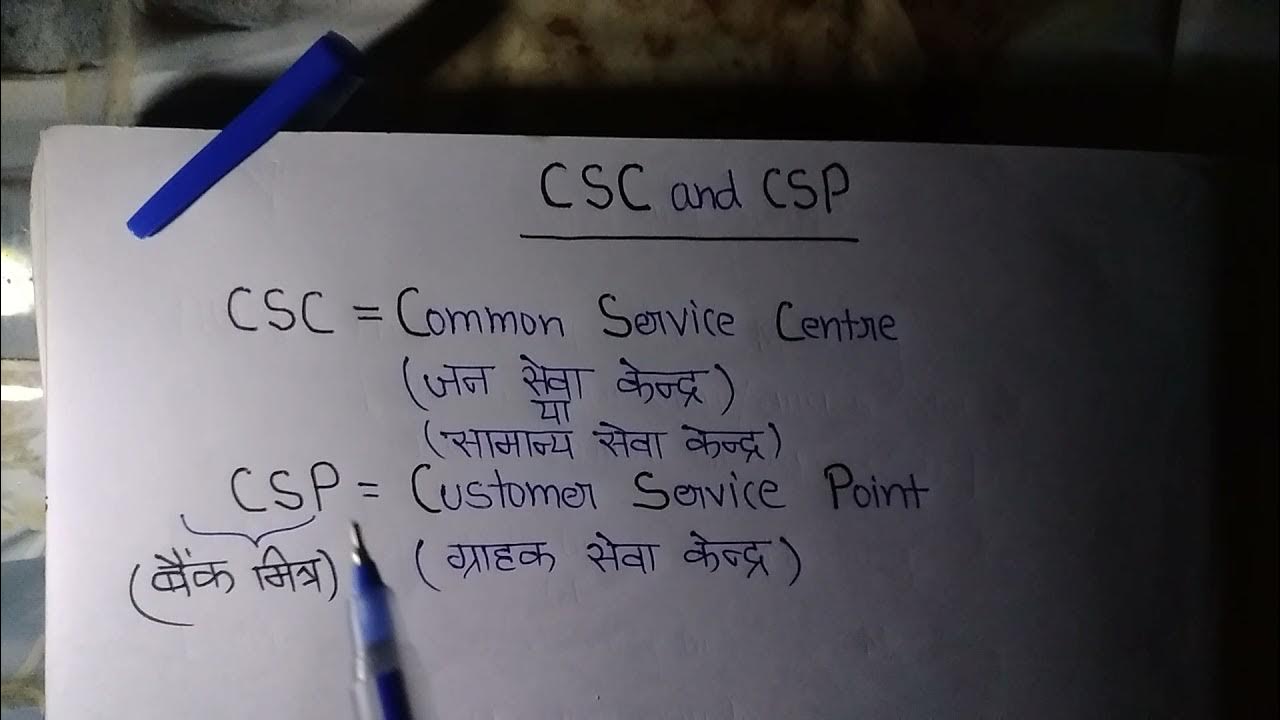 CSC and CSP
CSC = Common Service Centre
(जन सेवा केन्द्र)
या
(सामान्य सेवा केन्द्र)
CSP = Customer Service Point
(बैंक मित्र) (ग्राहक सेवा केन्द्र)